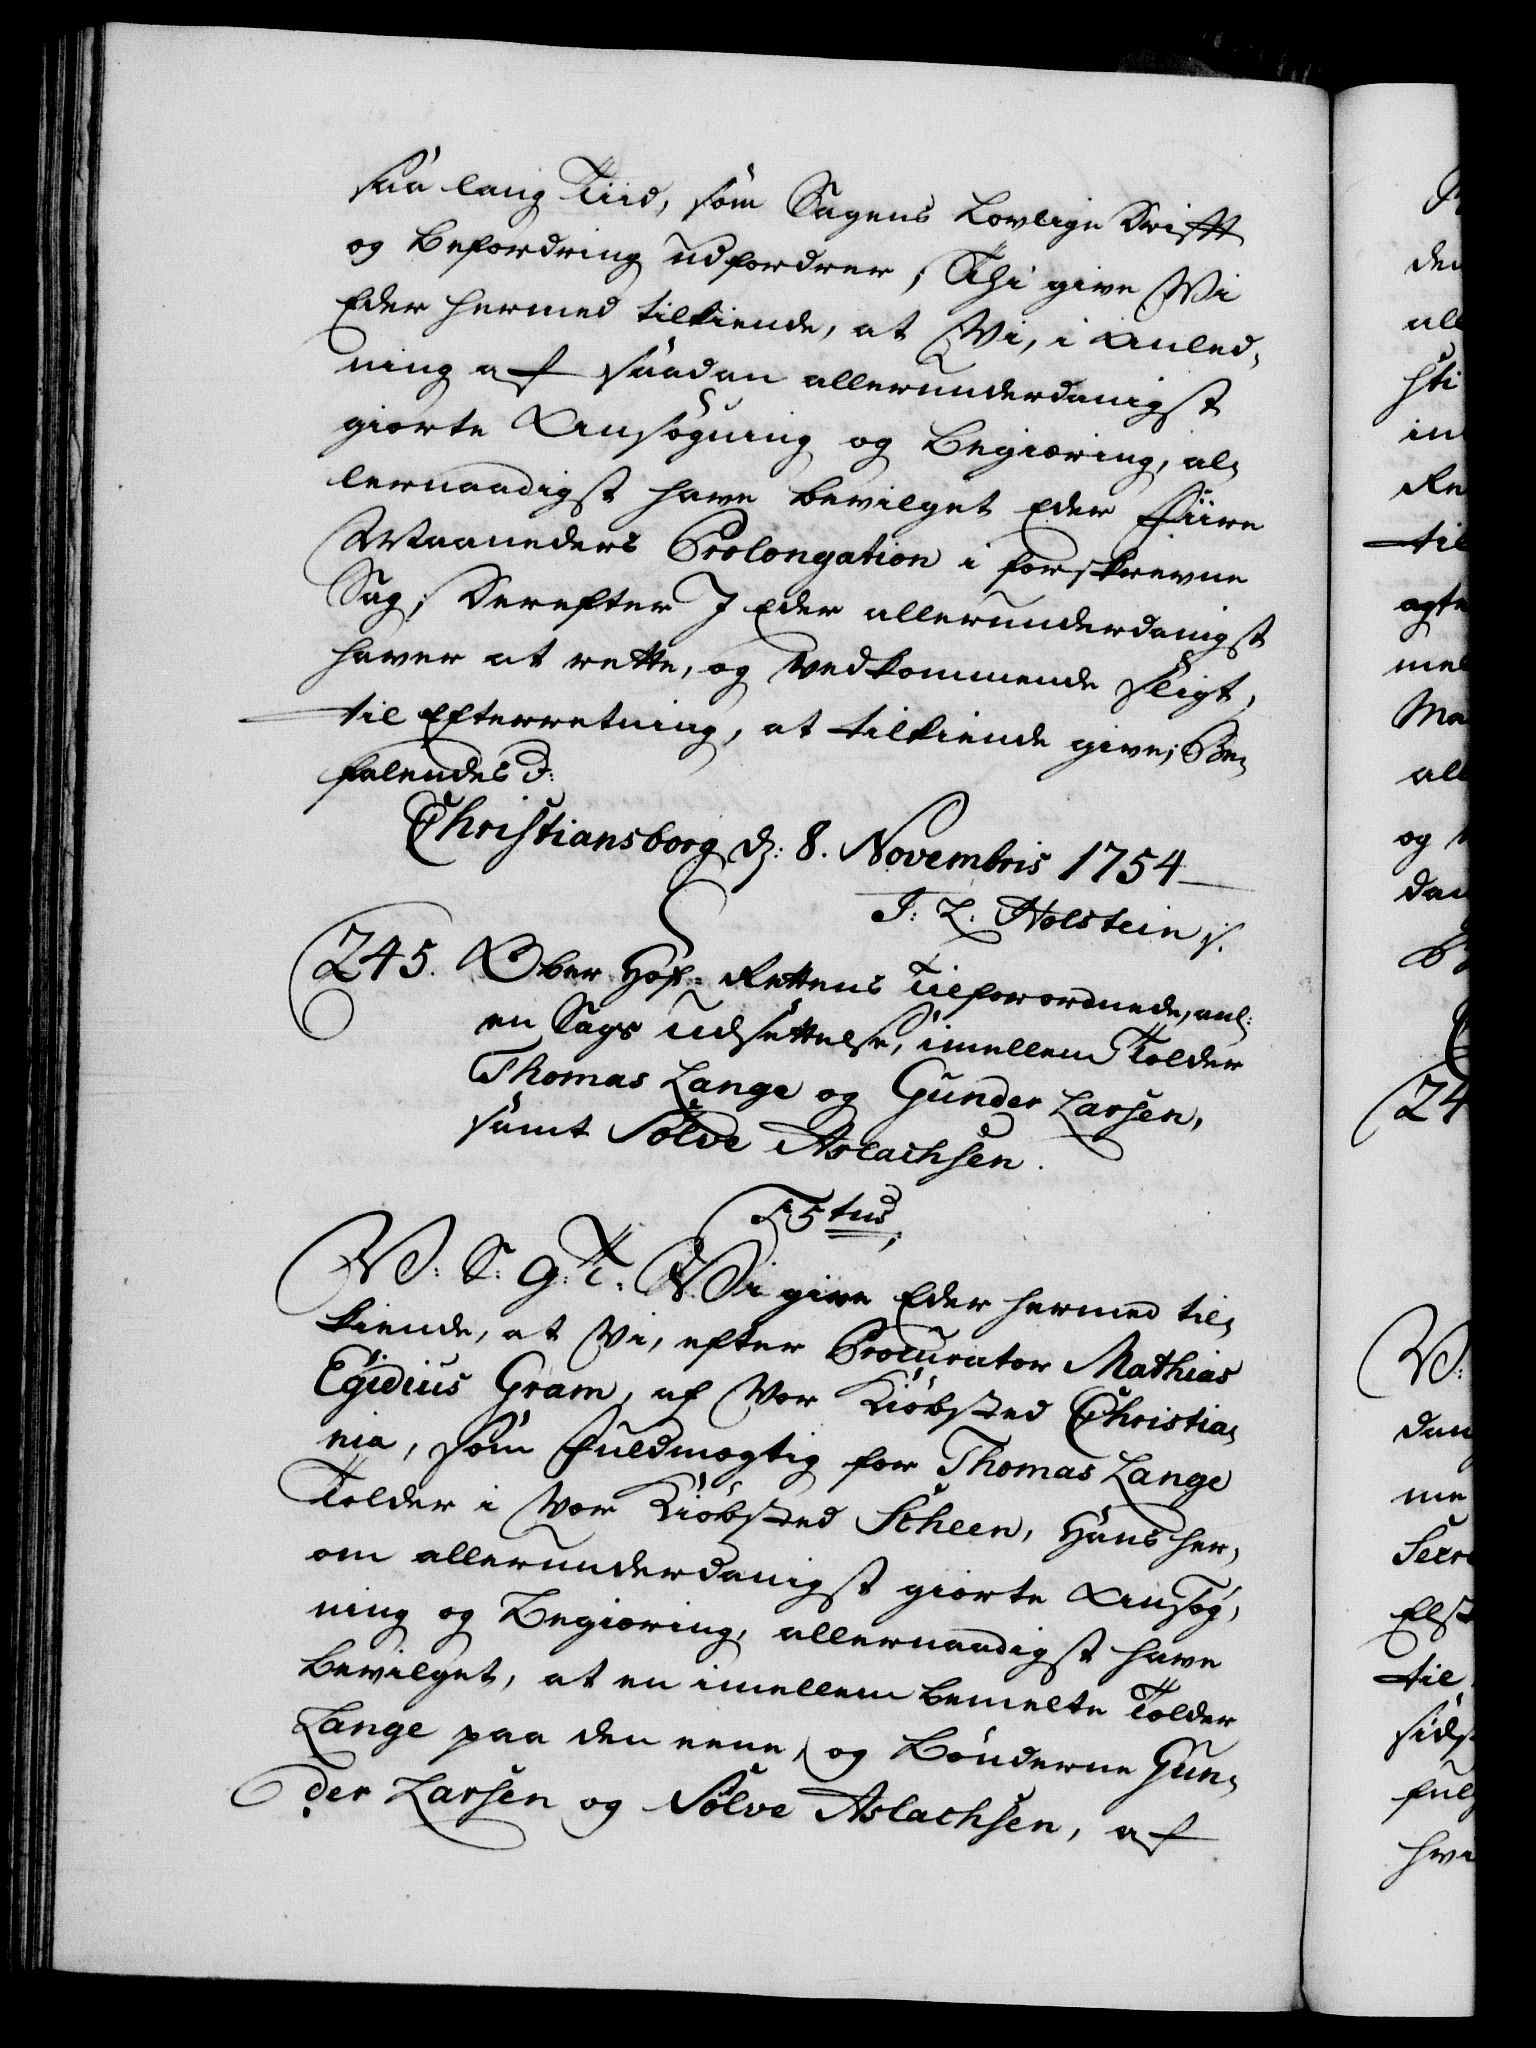 saa lang Tiid, som Sagens Lovlige Drifft
og Befordring udfordrer; Thi give Wi
Eder hermed tilkiende, at Wi, i Anled-
ning af saadan allerunderdanigst
giorte Ansøgning og Begiæring, al-
lernaadigst have bevilget Eder Fiire
Maaneders Prolongation i forskrevne
Sag; Derefter I Eder allerunderdanigst
haver at rette, og vedkommende sligt,
til Efterretning, at tilkiende give; Be-
falendes d:
Christiansborg d: 8. Novembris 1754
J: L. Holstein s.
245. Ober Hof-Rettens Tilforordnede, anl:
en Sags Udsettelse, imellem Tolder
Thomas Lange og Gunder Larsen,
samt Sølve Aslachsen.
F 5tus;
W: S: G: T: Wi give Eder hermed til-
kiende, at Wi, efter Procurator Mathias
Egidius Gram, af Vor Kiøbsted Christia-
nia, som Fuldmægtig for Thomas Lange
Tolder i Vor Kiøbsted Scheen, Hans her-
om allerunderdanigst giorte Ansøg-
ning og Begiæring, allernaadigst have
bevilget, at en imellem bemelte Tolder
Lange paa den eene, og Bønderne Gun-
der Larsen og Sølve Aslachsen, af